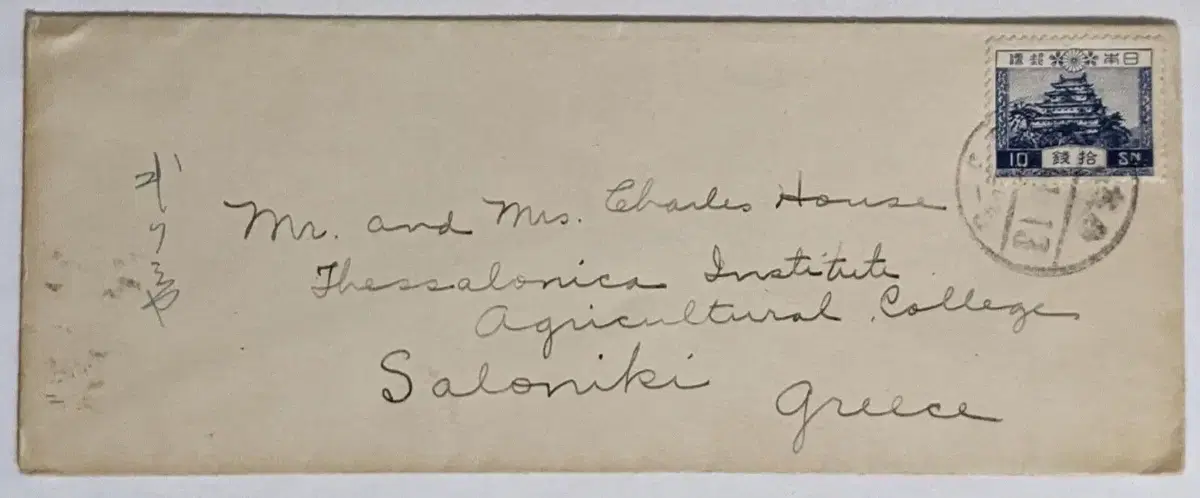 日本郵便
10 拾錢 SN
13
ギリシヤ
Mr. and Mrs. Charles House
Thessalonica Institute
Agricultural College
Saloniki
Greece